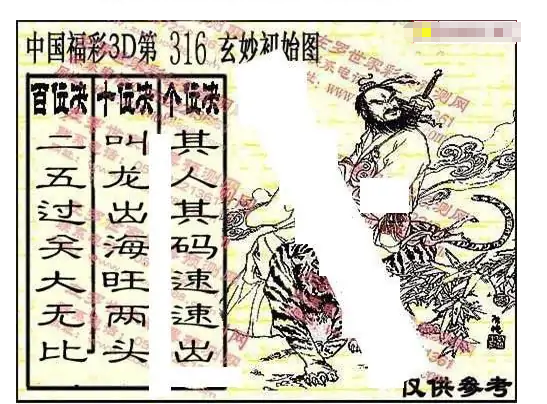 中国福彩3D第 316 玄妙初始图
百位决 十位决 个位决
二五过关大无比
叫龙出海旺两头
其人其码速速出
仅供参考